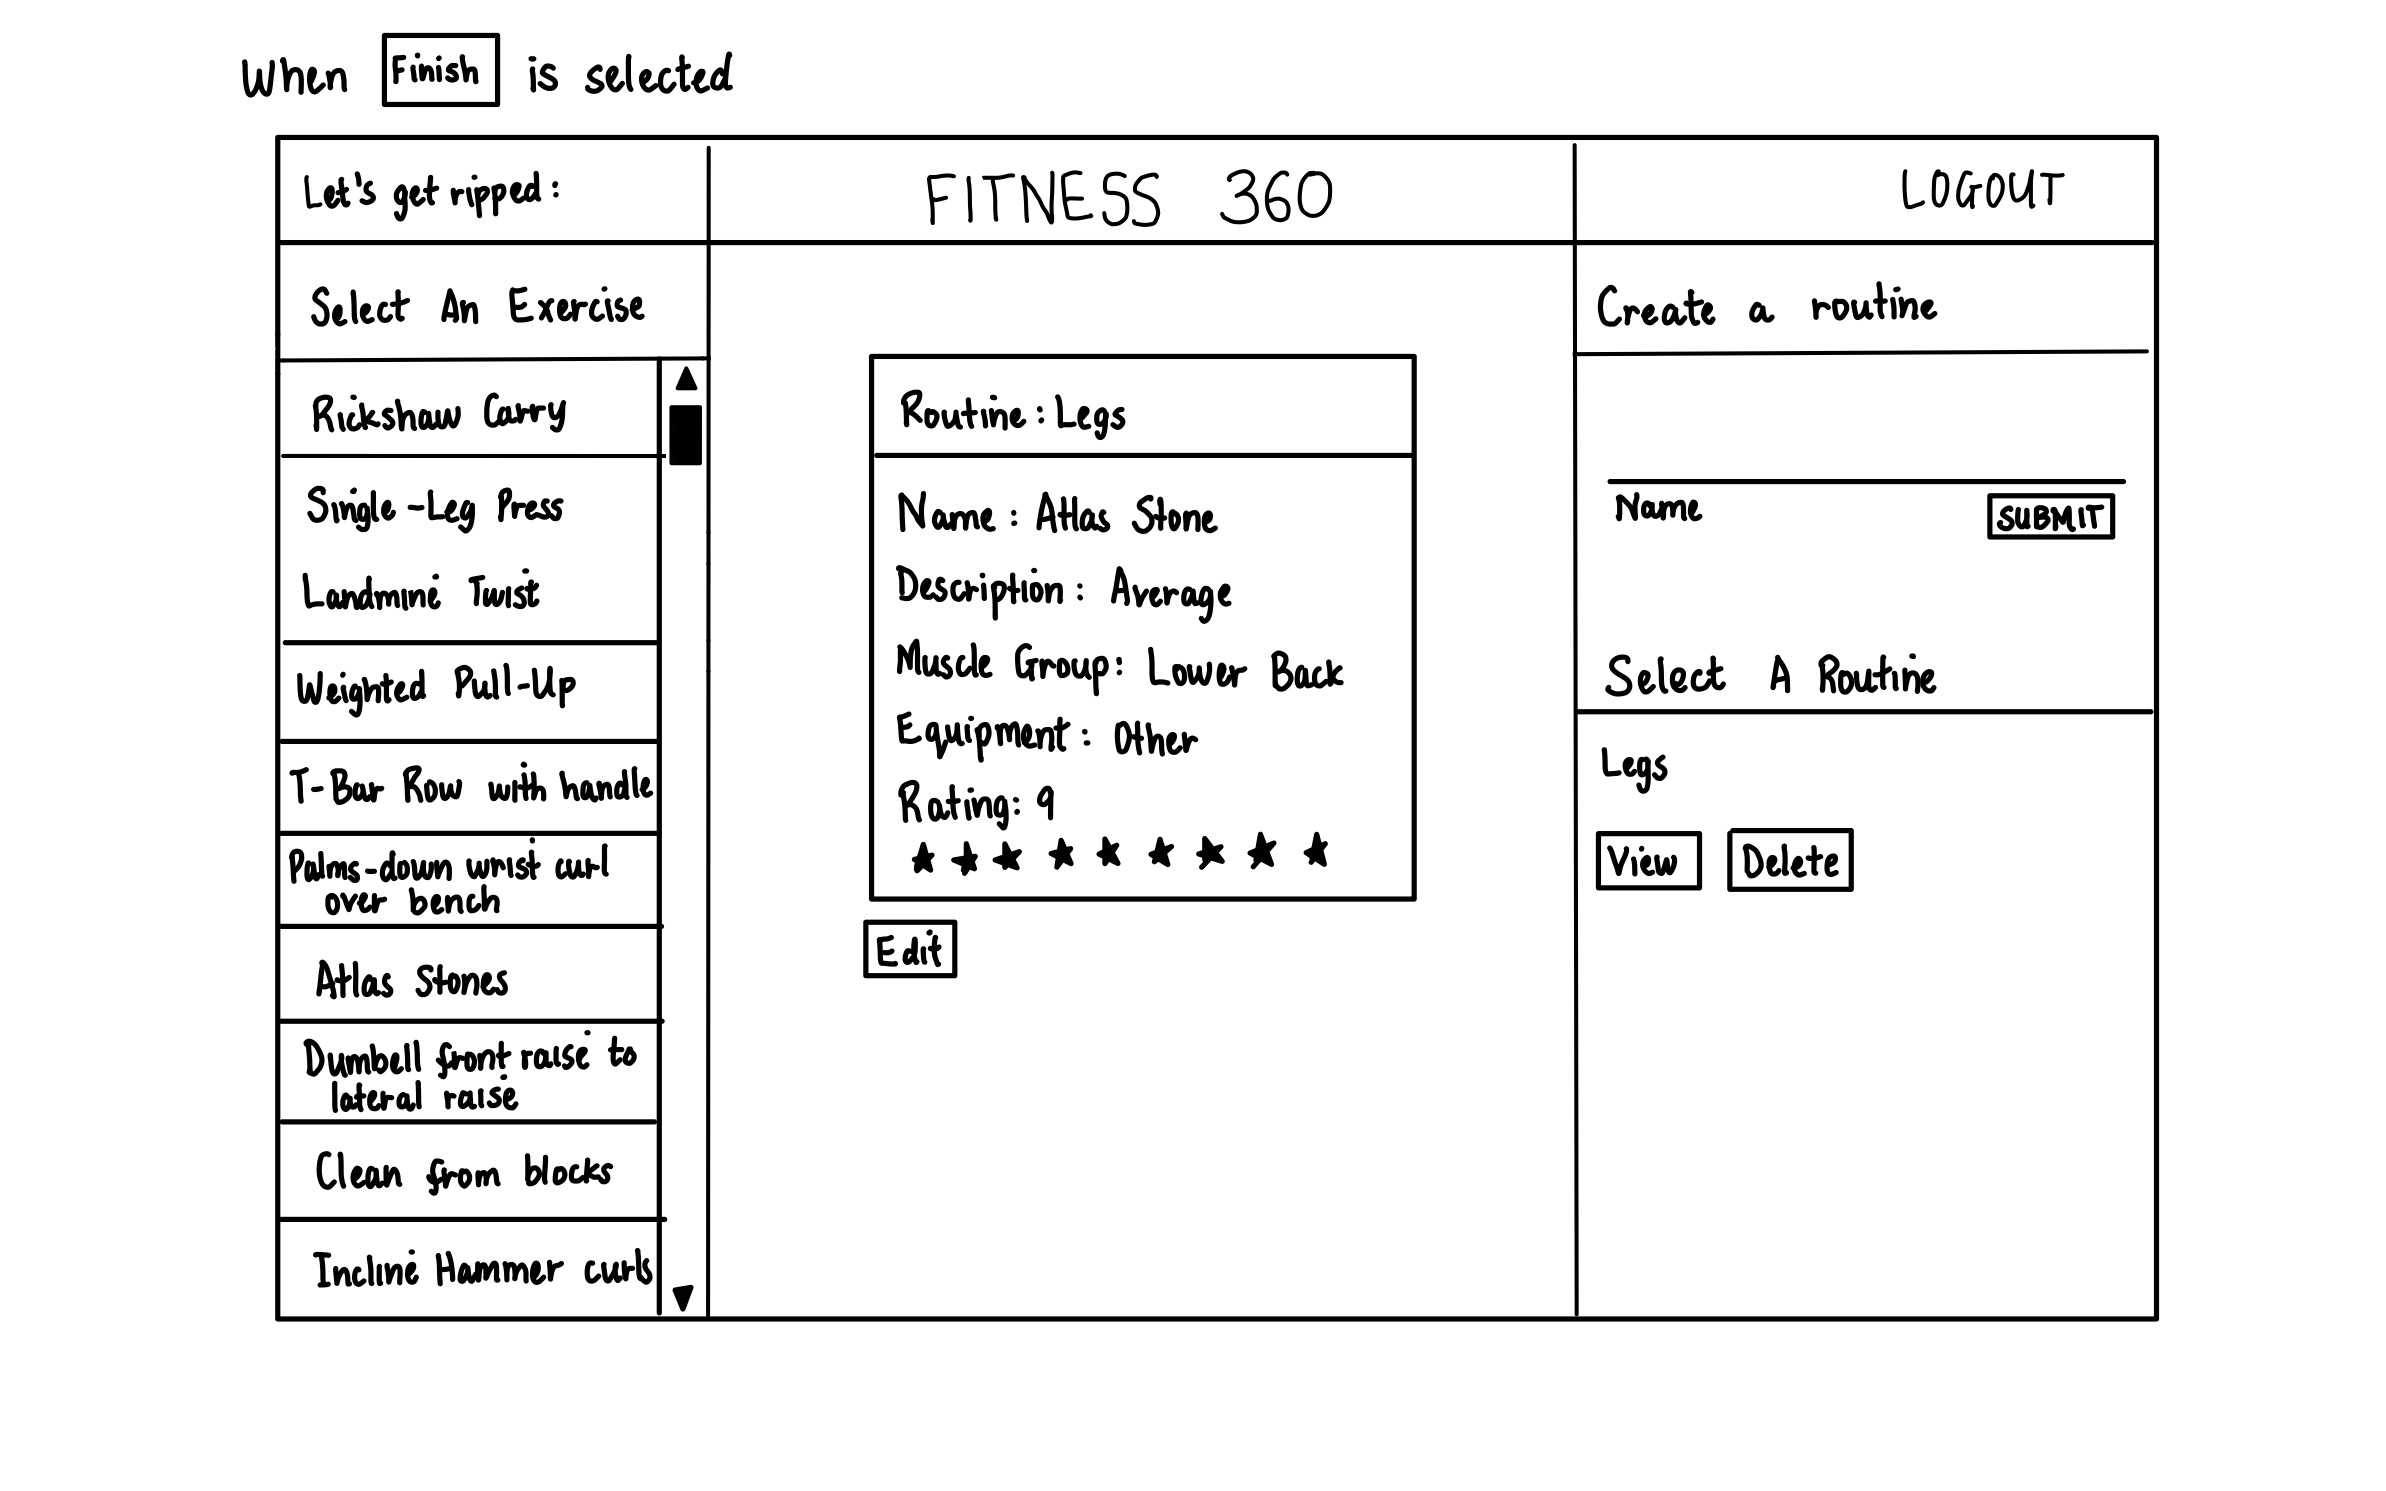 When Finish is selected
Let's get ripped:
FITNESS 360
LOGOUT
Select An Exercise
Rickshaw Carry
Single-Leg Press
Landmine Twist
Weighted Pull-Up
T-Bar Row with handle
Palms-down wrist curl
over bench
Atlas Stones
Dumbell front raise to
lateral raise
Clean from blocks
Incline Hammer curls
Routine: Legs
Name: Atlas Stone
Description: Average
Muscle Group: Lower Back
Equipment: Other
Rating: 9
★ ★ ★ ★ ★ ★ ★ ★ ★
Edit
Create a routine
Name
SUBMIT
Select A Routine
Legs
View
Delete